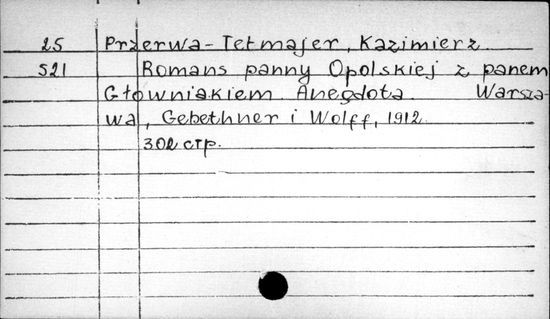 25 Przerwa-Tetmajer, Kazimierz
521 Romans panny Opolskiej z panem
Głowniakiem. Anegdota. Warsza-
wa, Gebethner i Wolff, 1912.
302 стр.